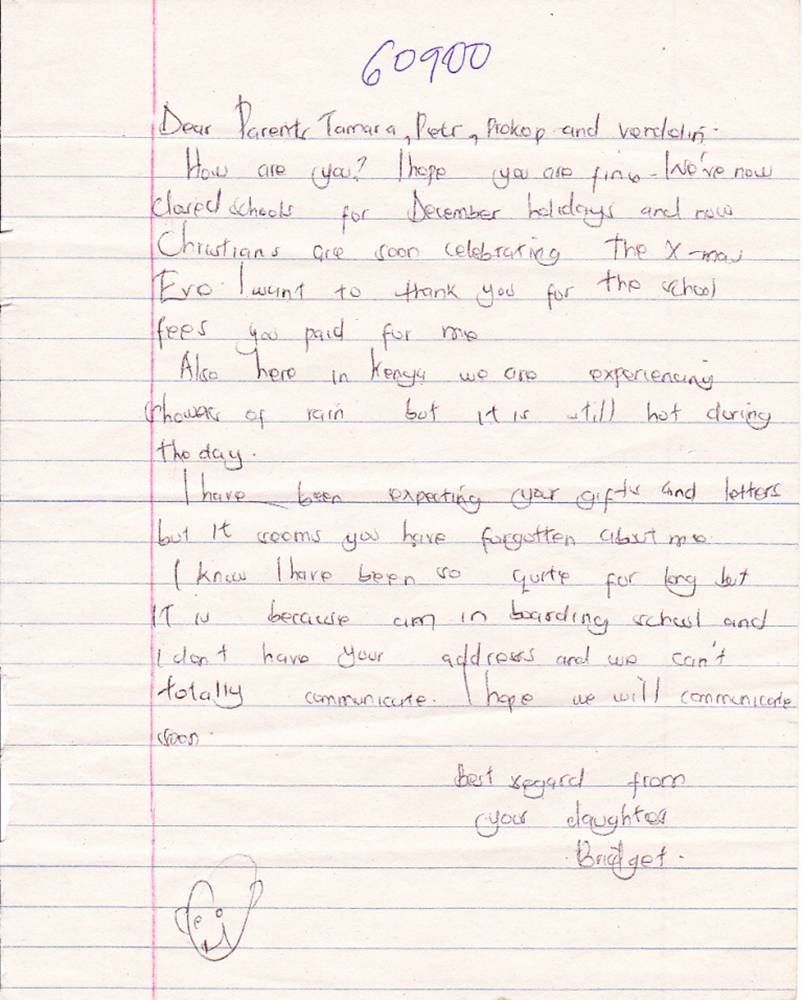 60900
Dear Parents Tamara, Petr, Prokop and verdolin.
How are you? I hope you are fine. We've now
closed schools for December holidays and now
Christians are soon celebrating the X-mas
Eve. I want to thank you for the school
fees you paid for me
Also here in Kenya we are experiencing
showers of rain but it is still hot during
the day.
I have been expecting your gifts and letters
but it seems you have forgotten about me.
I know I have been so quite for long but
it is because am in boarding school and
I don't have your address and we can't
totally communicate. I hope we will communicate
soon.
Best regard from
your daughter
Bridget.